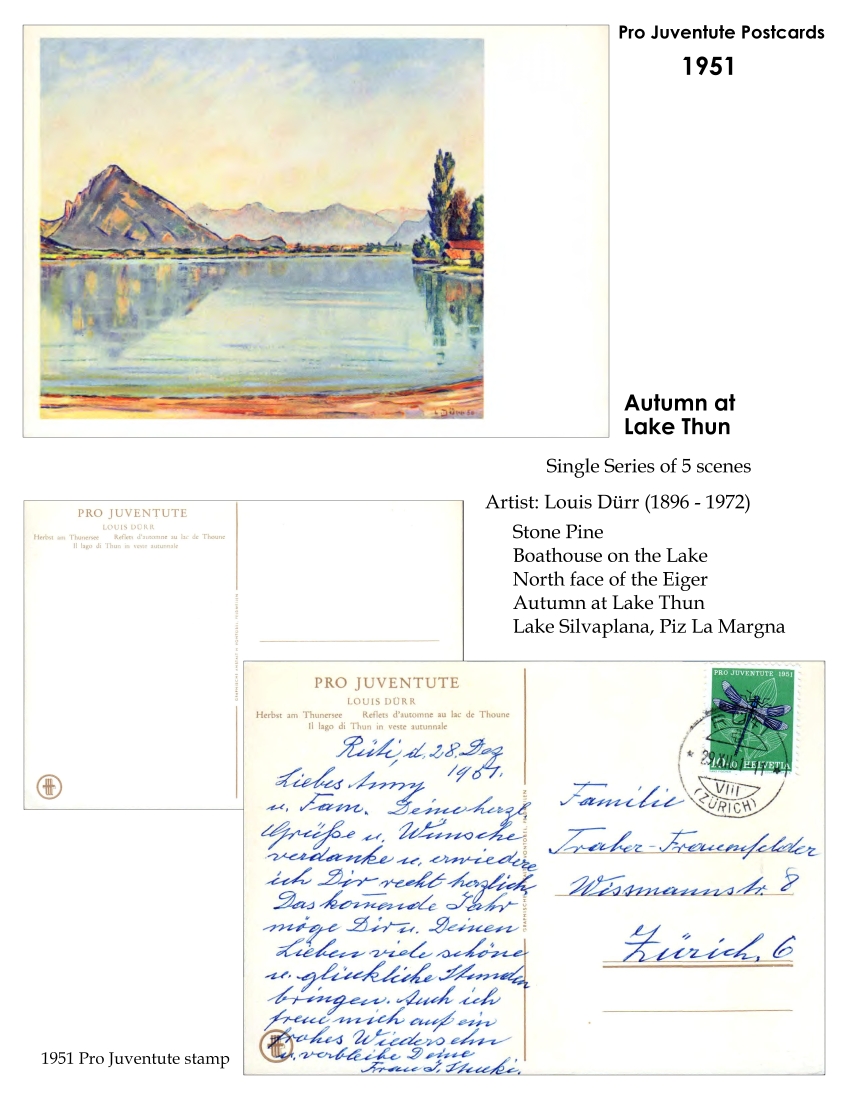 Pro Juventute Postcards
1951
L. Dürr
Autumn at
Lake Thun
Single Series of 5 scenes
Artist: Louis Dürr (1896 - 1972)
Stone Pine
Boathouse on the Lake
North face of the Eiger
Autumn at Lake Thun
Lake Silvaplana, Piz La Margna
PRO JUVENTUTE
LOUIS DÜRR
Herbst am Thunersee Reflets d'automne au lac de Thoune
Il lago di Thun in veste autunnale
PRO JUVENTUTE
LOUIS DÜRR
Herbst am Thunersee Reflets d'automne au lac de Thoune
Il lago di Thun in veste autunnale
Rüti, d. 28. Dez
1951.
Liebes Anny
u. Fam. Deine herzl
Grüße u. Wünsche
verdanke u. erwiedere
ich Dir recht herzlich
Das komende Jahr
möge Dir u. Deinen
Lieben viele schöne
u. glückliche Stunden
bringen. Auch ich
freue mich auf ein
frohes Wiedersehn
u. verbleibe Deine
Frau
PRO JUVENTUTE 1951
HELVETIA
VIII
(ZÜRICH)
Familie
Traber-Frauenfelder
Wissmannstr. 8
Zürich, 6
1951 Pro Juventute stamp